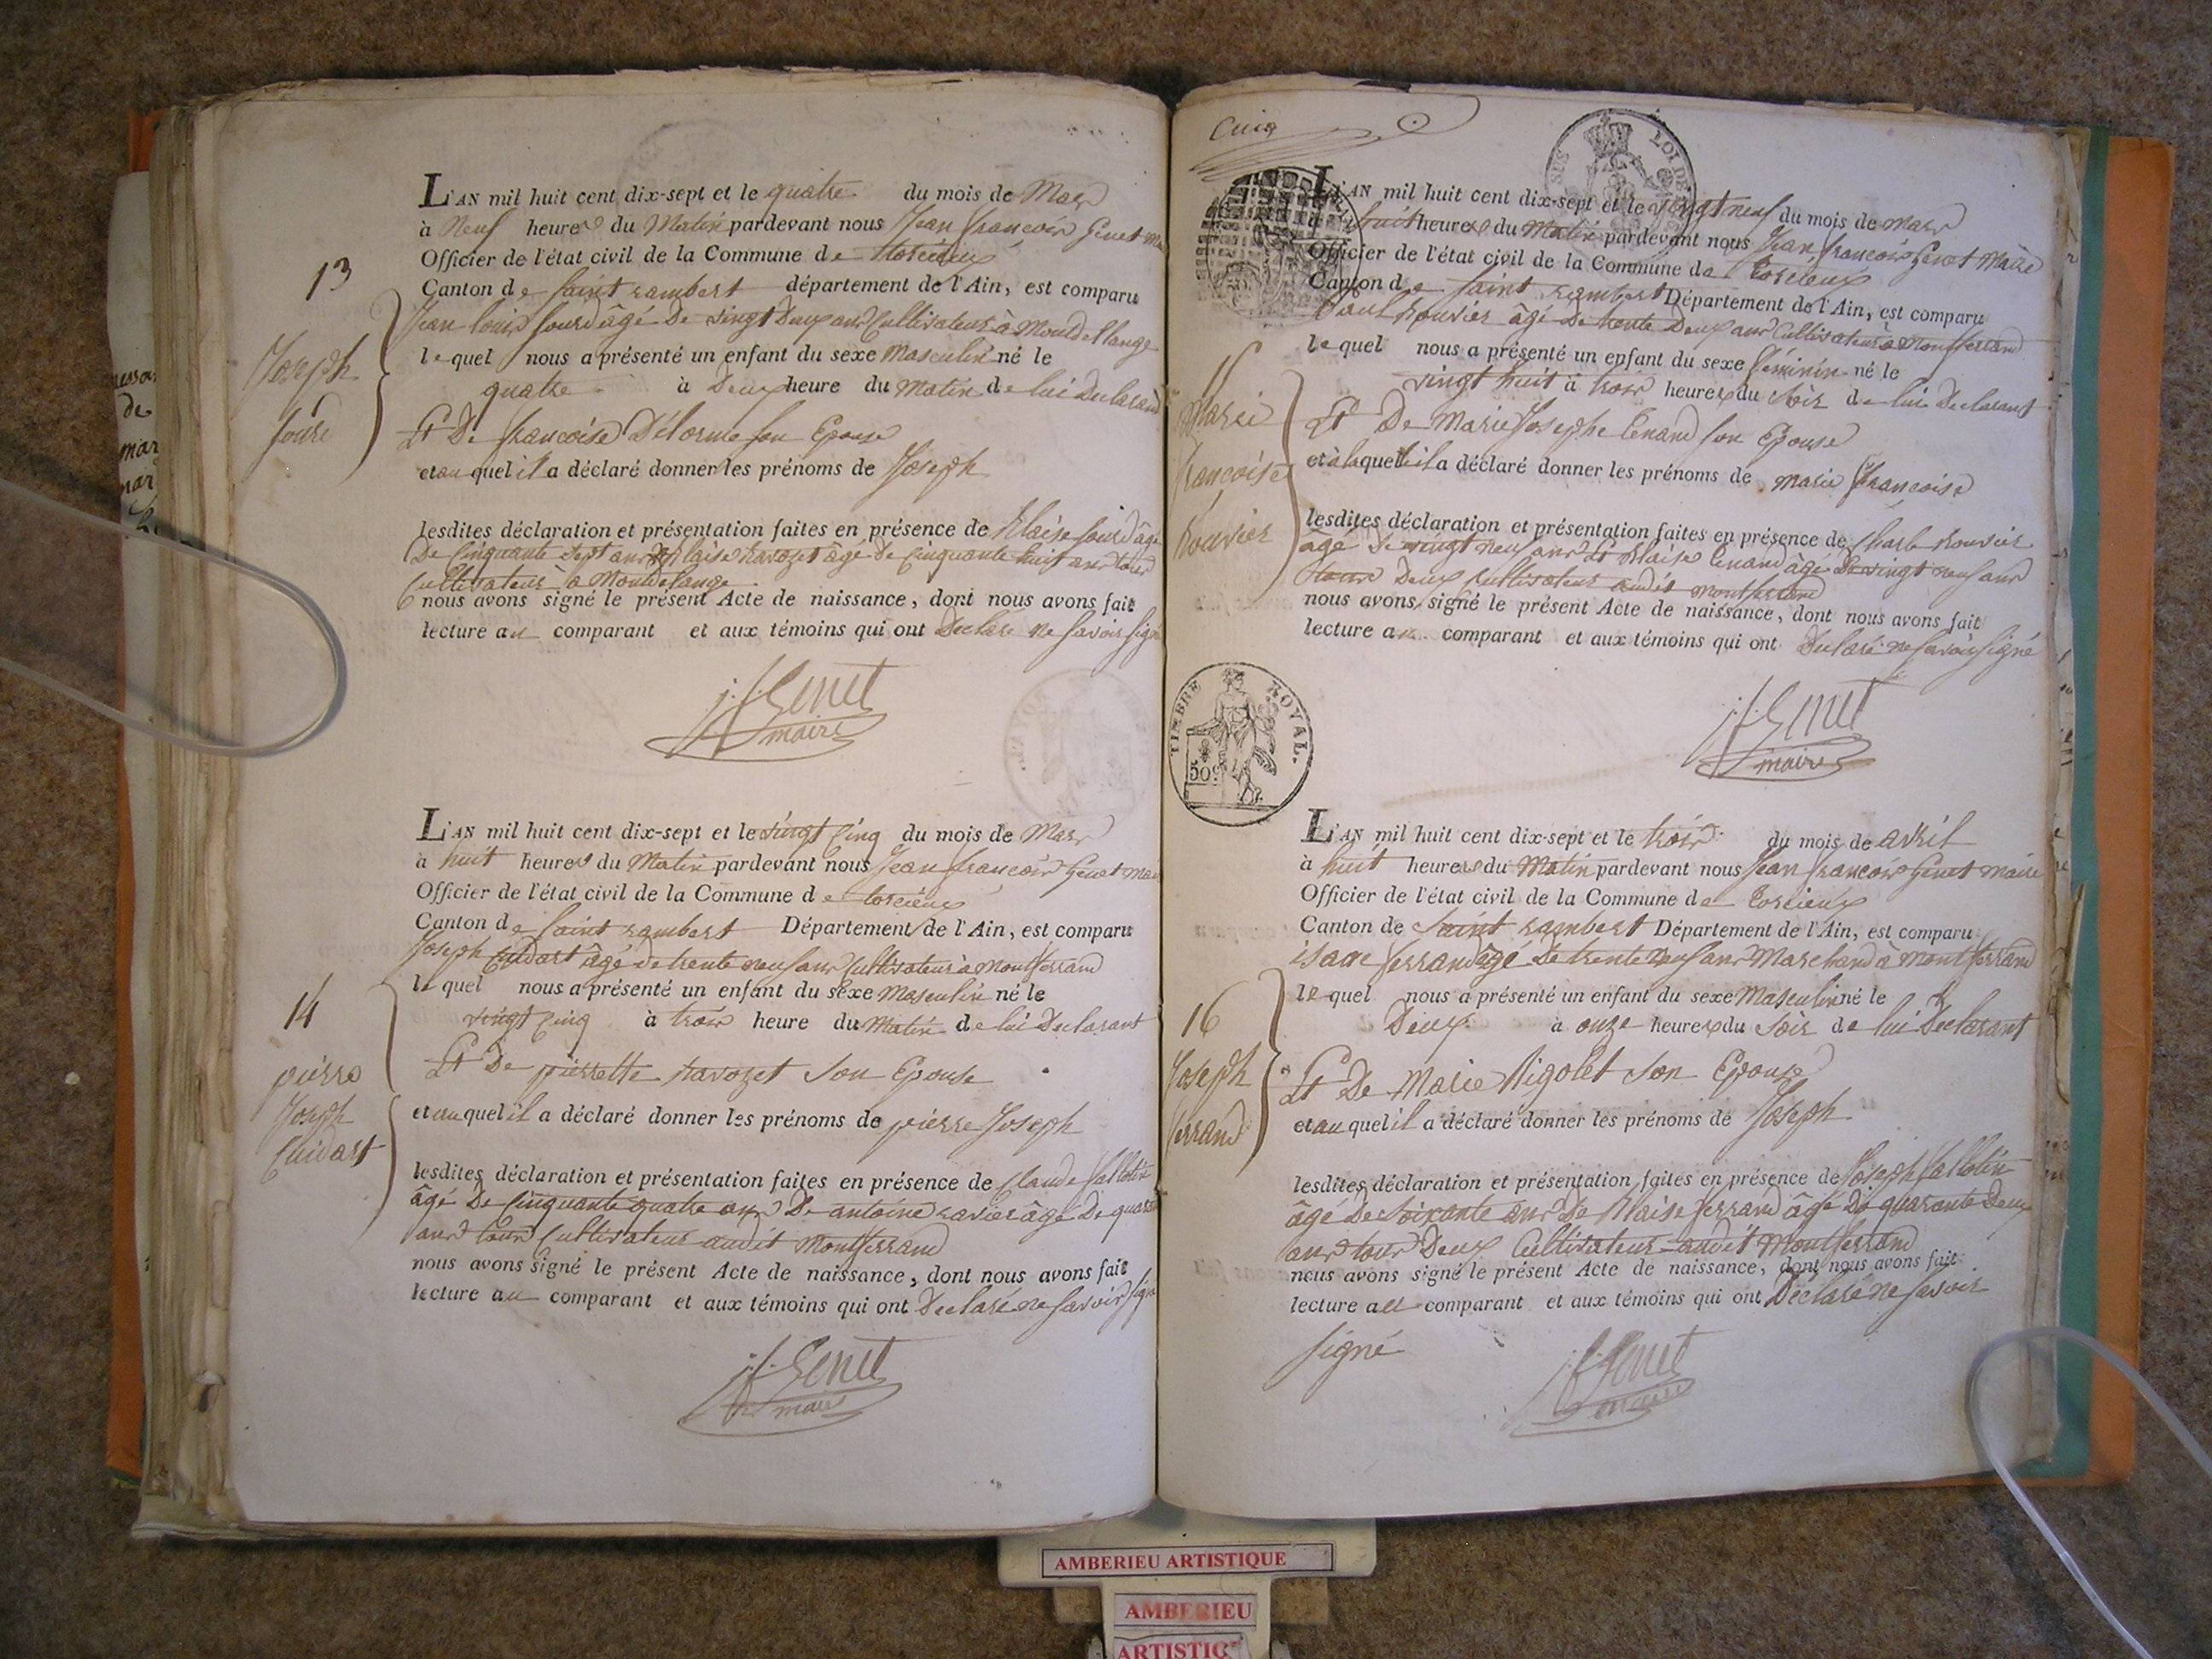 L'AN mil huit cent dix-sept et le quatre du mois de Mars
à Neuf heures du Matin pardevant nous Jean françois Genet
Officier de l'état civil de la Commune de torcieux
Canton de saint rambert département de l'Ain, est comparu
Jean louis sourd âgé De vingt Deux ans Cultivateur à
lequel nous a présenté un enfant du sexe Masculin né le
quatre à Deux heure du Matin de lui Declarant
Et De francoise Délorme son Epouse
et au quel il a déclaré donner les prénoms de Joseph
lesdites déclaration et présentation faites en présence de Blaise sourd âgé
De Cinquante sept ans Et Blaise ravozet âgé de Cinquante huit ans tous
Cultivateurs à
nous avons signé le présent Acte de naissance, dont nous avons fait
lecture au comparant et aux témoins qui ont Declaré ne savoir
j. f. Genet
maire
13
Joseph
sourd
L'AN mil huit cent dix-sept et le vingt Cinq du mois de Mars
à huit heures du Matin pardevant nous Jean françois Genet
Officier de l'état civil de la Commune de torcieux
Canton de saint rambert Département de l'Ain, est comparu
Joseph Cuidart âgé de trente neuf ans Cultivateur à Montferrand
lequel nous a présenté un enfant du sexe Masculin né le
vingt Cinq à trois heure du Matin de lui Declarant
Et De pierrette ravozet son Epouse
et au quel il a déclaré donner les prénoms de pierre Joseph
lesdites déclaration et présentation faites en présence de Claude
âgé De Cinquante quatre ans De antoine ravier âgé De
ans tous Cultivateur audit Montferrand
nous avons signé le présent Acte de naissance, dont nous avons fait
lecture au comparant et aux témoins qui ont Declaré ne savoir
j. f. Genet
maire
14
pierre
Joseph
Cuidart
Cinq
L'AN mil huit cent dix-sept et le vingt neuf du mois de Mars
à huit heures du Matin pardevant nous Jean françois Genet Maire
Officier de l'état civil de la Commune de torcieux
Canton de saint rambert Département de l'Ain, est comparu
Paul Rouvier âgé De trente Deux ans Cultivateur à Montferrand
lequel nous a présenté un enfant du sexe féminin né le
vingt huit à trois heures du soir de lui Declarant
Et De Marie Josephe Cenand son Epouse
et à laquelle il a déclaré donner les prénoms de Marie françoise
lesdites déclaration et présentation faites en présence de Charle Rouvier
âgé De vingt neuf ans Et Blaise Cenand âgé De vingt neuf ans
tous Deux Cultivateur audit Montferrand
nous avons signé le présent Acte de naissance, dont nous avons fait
lecture au comparant et aux témoins qui ont Declaré ne savoir signé
j. f. Genet
maire
15
Marie
françoise
Rouvier
TIMBRE ROYAL.
50c
L'AN mil huit cent dix-sept et le trois du mois de avril
à huit heures du Matin pardevant nous Jean françois Genet Maire
Officier de l'état civil de la Commune de torcieux
Canton de saint rambert Département de l'Ain, est comparu
isaac ferrand âgé De trente neuf ans Marchand à Montferrand
lequel nous a présenté un enfant du sexe Masculin né le
Deux à onze heures du soir de lui Declarant
Et De Marie Rigolet son Epouse
et au quel il a déclaré donner les prénoms de Joseph
lesdites déclaration et présentation faites en présence de Joseph
âgé De soixante ans De Blaise ferrand âgé De quarante Deux
ans tous Deux Cultivateur audit Montferrand
nous avons signé le présent Acte de naissance, dont nous avons fait
lecture au comparant et aux témoins qui ont Déclaré ne savoir
signé
j. f. Genet
maire
16
Joseph
ferrand
AMBERIEU ARTISTIQUE
AMBERIEU
ARTISTIQ